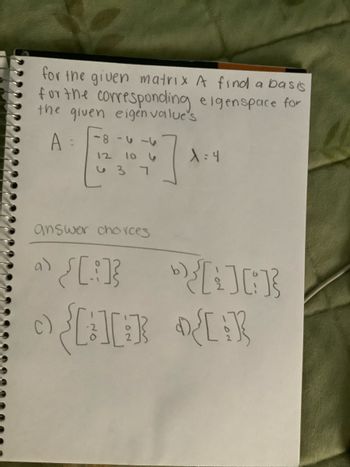 for the given matrix A find a basis
for the corresponding eigenspace for
the given eigenvalue's
A : [ -8 -6 -6
12 10 6
6 3 7 ] λ = 4
answer choices
a) { [ 0 1 -1 ] } b) { [ 1 2 ] [ 0 1 ] }
c) { [ 1 -2 0 ] [ 1 0 2 ] } d) { [ 1 0 2 ] }